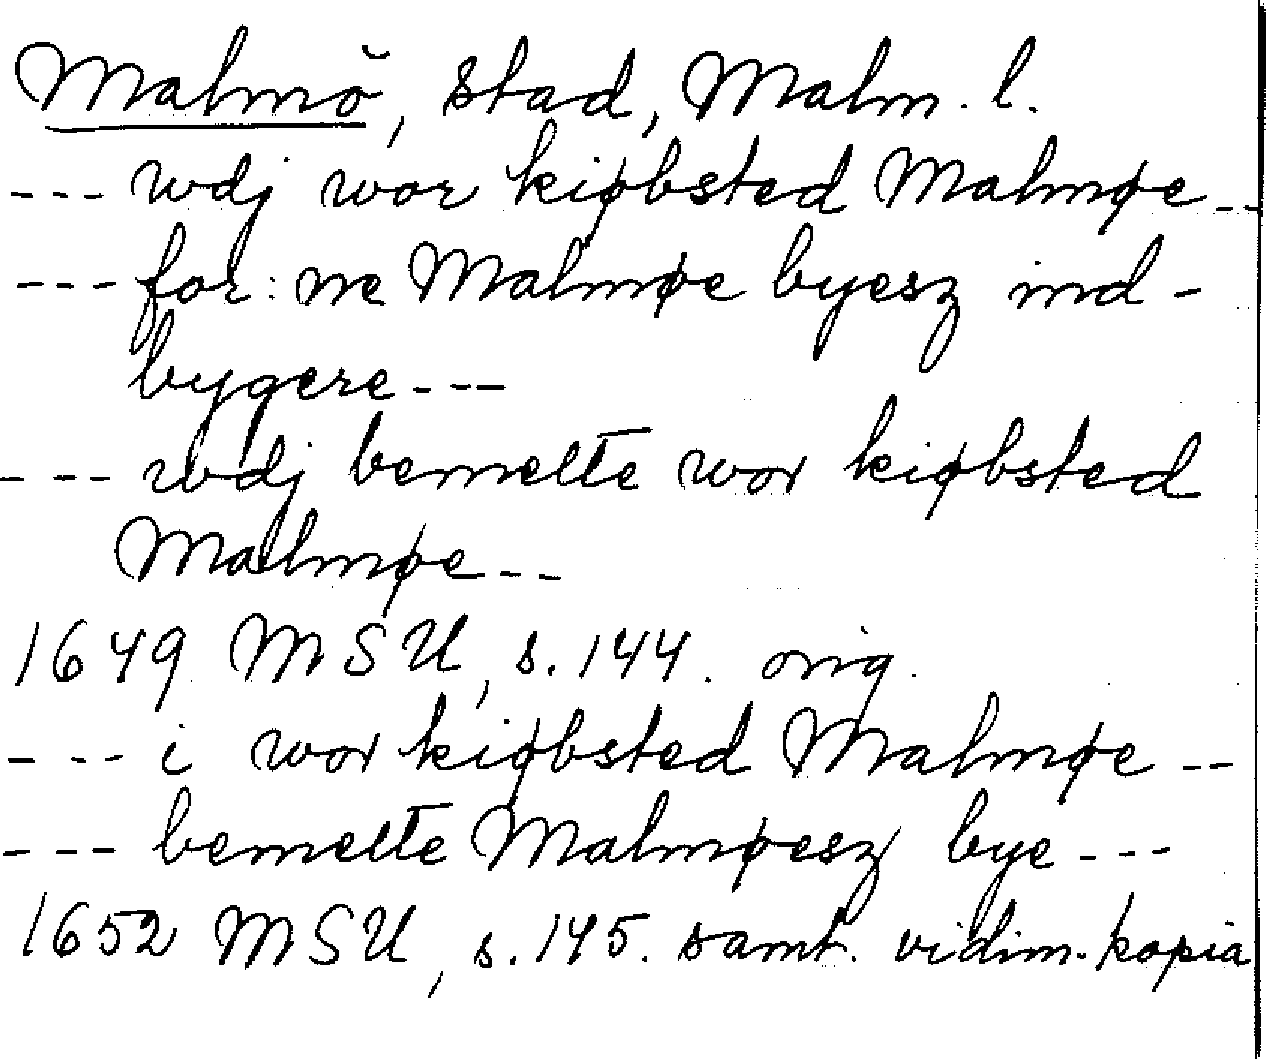 Malmö, stad, Malm. l.
--- wdj wor kiøbsted Malmøe --
--- for: ne Malmøe byesz ind-
bygere ---
--- wdj bemelte wor kiøbsted
Malmøe --
1649 MSU, s. 144. orig.
--- i wor kiøbsted Malmøe --
--- bemelte Malmøesz bye ---
1652 MSU, s. 145. samt. vidim. kopia